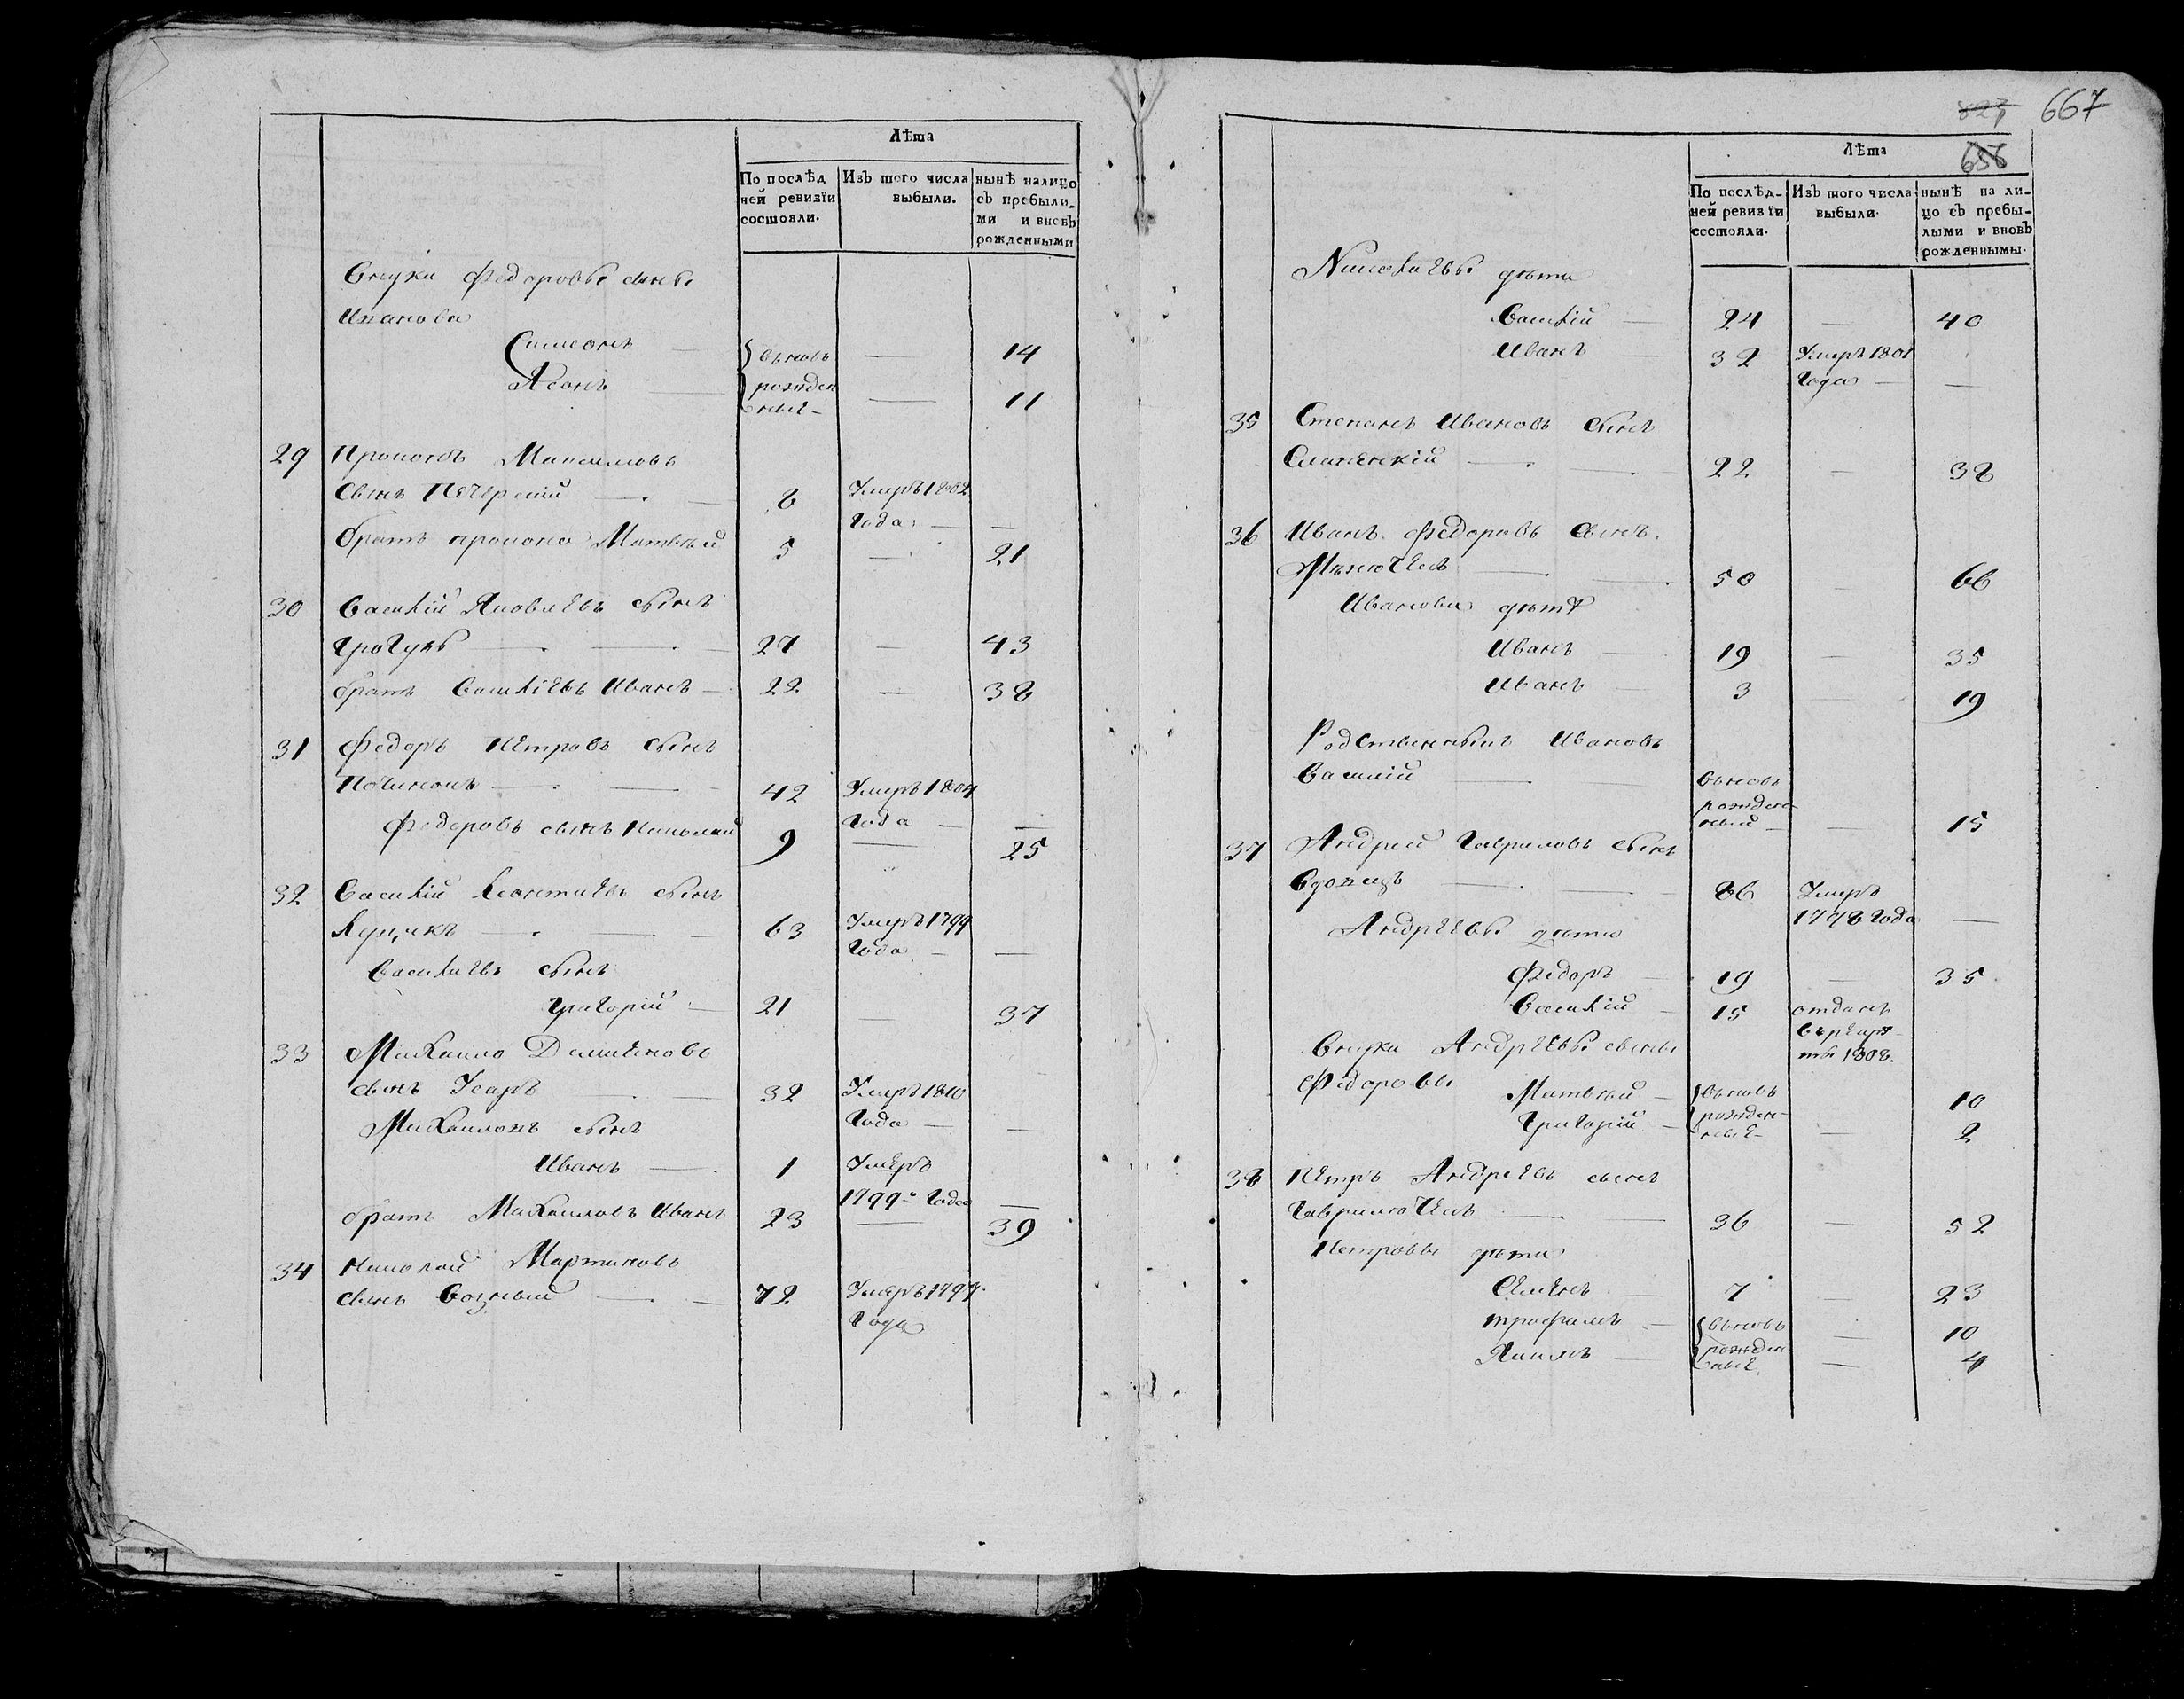 Лѣта
По послѣд
ней ревизїи
состояли.
Изъ того числа
выбыли.
нынѣ налицо
съ пребыли-
ми и вновь
рожденными
Внуки Федоровы сыны
Иванова
Симеонъ — 14
вьновь
рожден
ные —
— 11
29 Прокопъ Максимовъ
сынъ 8 Умеръ 1802
Года —
братъ прокопа Матвѣй 5 — 21
30 Василій Яковлевъ сынъ
27 — 43
братъ Василіевъ Иванъ — 22 — 38
31 Федоръ Петровъ сынъ
42 Умеръ 1804
Года —
Федоровъ сынъ Николай 9 — 25
32 Василій Леонтиевъ сынъ
Куцикъ 63 Умеръ 1799
Года —
Василиевъ сынъ
Григорій — 21 — 37
33 Михаило Демияновъ
сынъ 32 Умеръ 1810
Года —
Михаиловъ сынъ
Иванъ — 1 Умеръ
1799 Года —
братъ Михаиловъ Иванъ 23 — 39
34 Николай Мартиновъ
сынъ Возный — 72 Умеръ 1797
Года
823 667
656
Лѣта
По послѣд-
ней ревизїи
состояли.
Изъ того числа
выбыли.
нынѣ на ли-
цо съ пребы-
лыми и вновь
рожденнымы.
Николаевы дѣти
Василій — 24 — 40
Иванъ 32 Умеръ 1801
Года — —
35 Степанъ Ивановъ сынъ
22 — 38
36 Иванъ Федоровъ сынъ
50 — 66
Иванова дѣти
Иванъ — 19 — 35
Иванъ — 3 — 19
Родственникъ Ивановъ
Василій — вьновь
рожден-
ный — — 15
37 Андрей Гавриловъ сынъ
86 Умеръ
1798 Года —
Андреевы дѣти
Федоръ — 19 — 35
Василій — 15 отданъ
вьрекру-
ты 1808.
Внуки Андреевы сыны
Федоровы Матвѣй — вьновь 10
Григорій — рожден-
ные — — 2
38 Петръ Андреевъ сынъ
Гаврилюченъ — 36 — 52
Петровы дѣти
Семенъ — 7 — 23
трофимъ — вьновь — 10
Якимъ — рожден
ные — 4